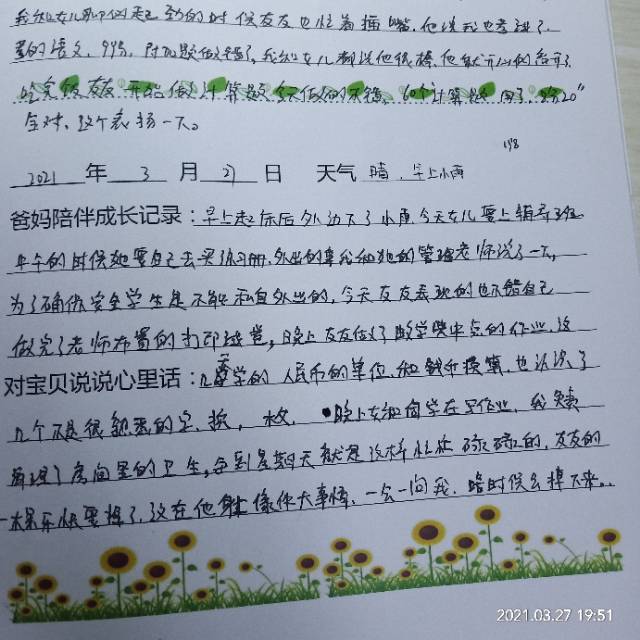 我和女儿聊的起劲的时候友友也忙着插嘴,他说我也考进了,
里的语文,99分,
我和女儿都说他很棒,他就开心的
吃完饭友友开始做计算题今天做的不错,60个计算题用了
全对,这个表扬一下。
198
2021 年 3 月 27 日 天气 晴,早上小雨
爸妈陪伴成长记录:早上起床后外边下了小雨今天女儿要上辅导班
中午的时候她要自己去买练习册,外出的事我和她的管理老师说了一下,
为了确保安全学生是不能私自外出的,今天友友表现的也不错自己
做完了老师布置的打印试卷,晚上友友做了数学
的作业,这
对宝贝说说心里话:几天学的人民币的单位,和钱币换算,也认识了
几个不是很熟悉的字,换,枚,晚上女儿自学在写作业,我
房间里的卫生,每到星期天就是这样忙忙碌碌的,友友的
一颗牙快要掉了,这在他身上像件大事情,一会一问我,啥时候会掉下来。
2021.03.27 19:51